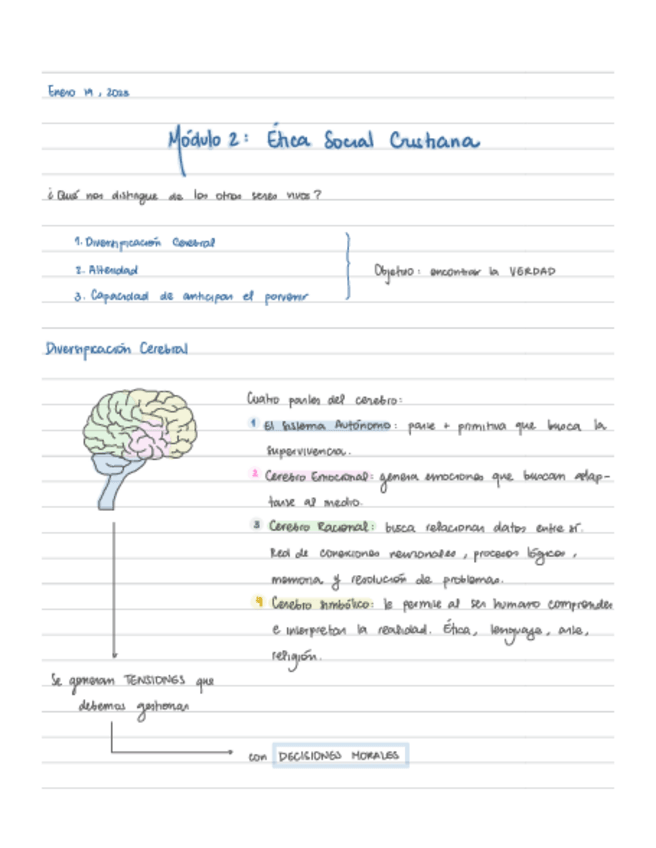 Enero 19, 2023
Módulo 2: Ética Social Cristiana
¿Qué nos distingue de los otros seres vivos?
1. Diversificación Cerebral
2. Alteridad
3. Capacidad de anticipar el porvenir
Objetivo: encontrar la VERDAD
Diversificación Cerebral
Cuatro partes del cerebro:
1 El Sistema Autónomo: parte + primitiva que busca la
supervivencia.
2 Cerebro Emocional: genera emociones que buscan adap-
tarse al medio.
3 Cerebro Racional: busca relacionar datos entre sí.
Red de conexiones neuronales, procesos lógicos,
memoria y resolución de problemas.
4 Cerebro simbólico: le permite al ser humano comprender
e interpretar la realidad. Ética, lenguaje, arte,
religión.
Se generan TENSIONES que
debemos gestionar
con DECISIONES MORALES